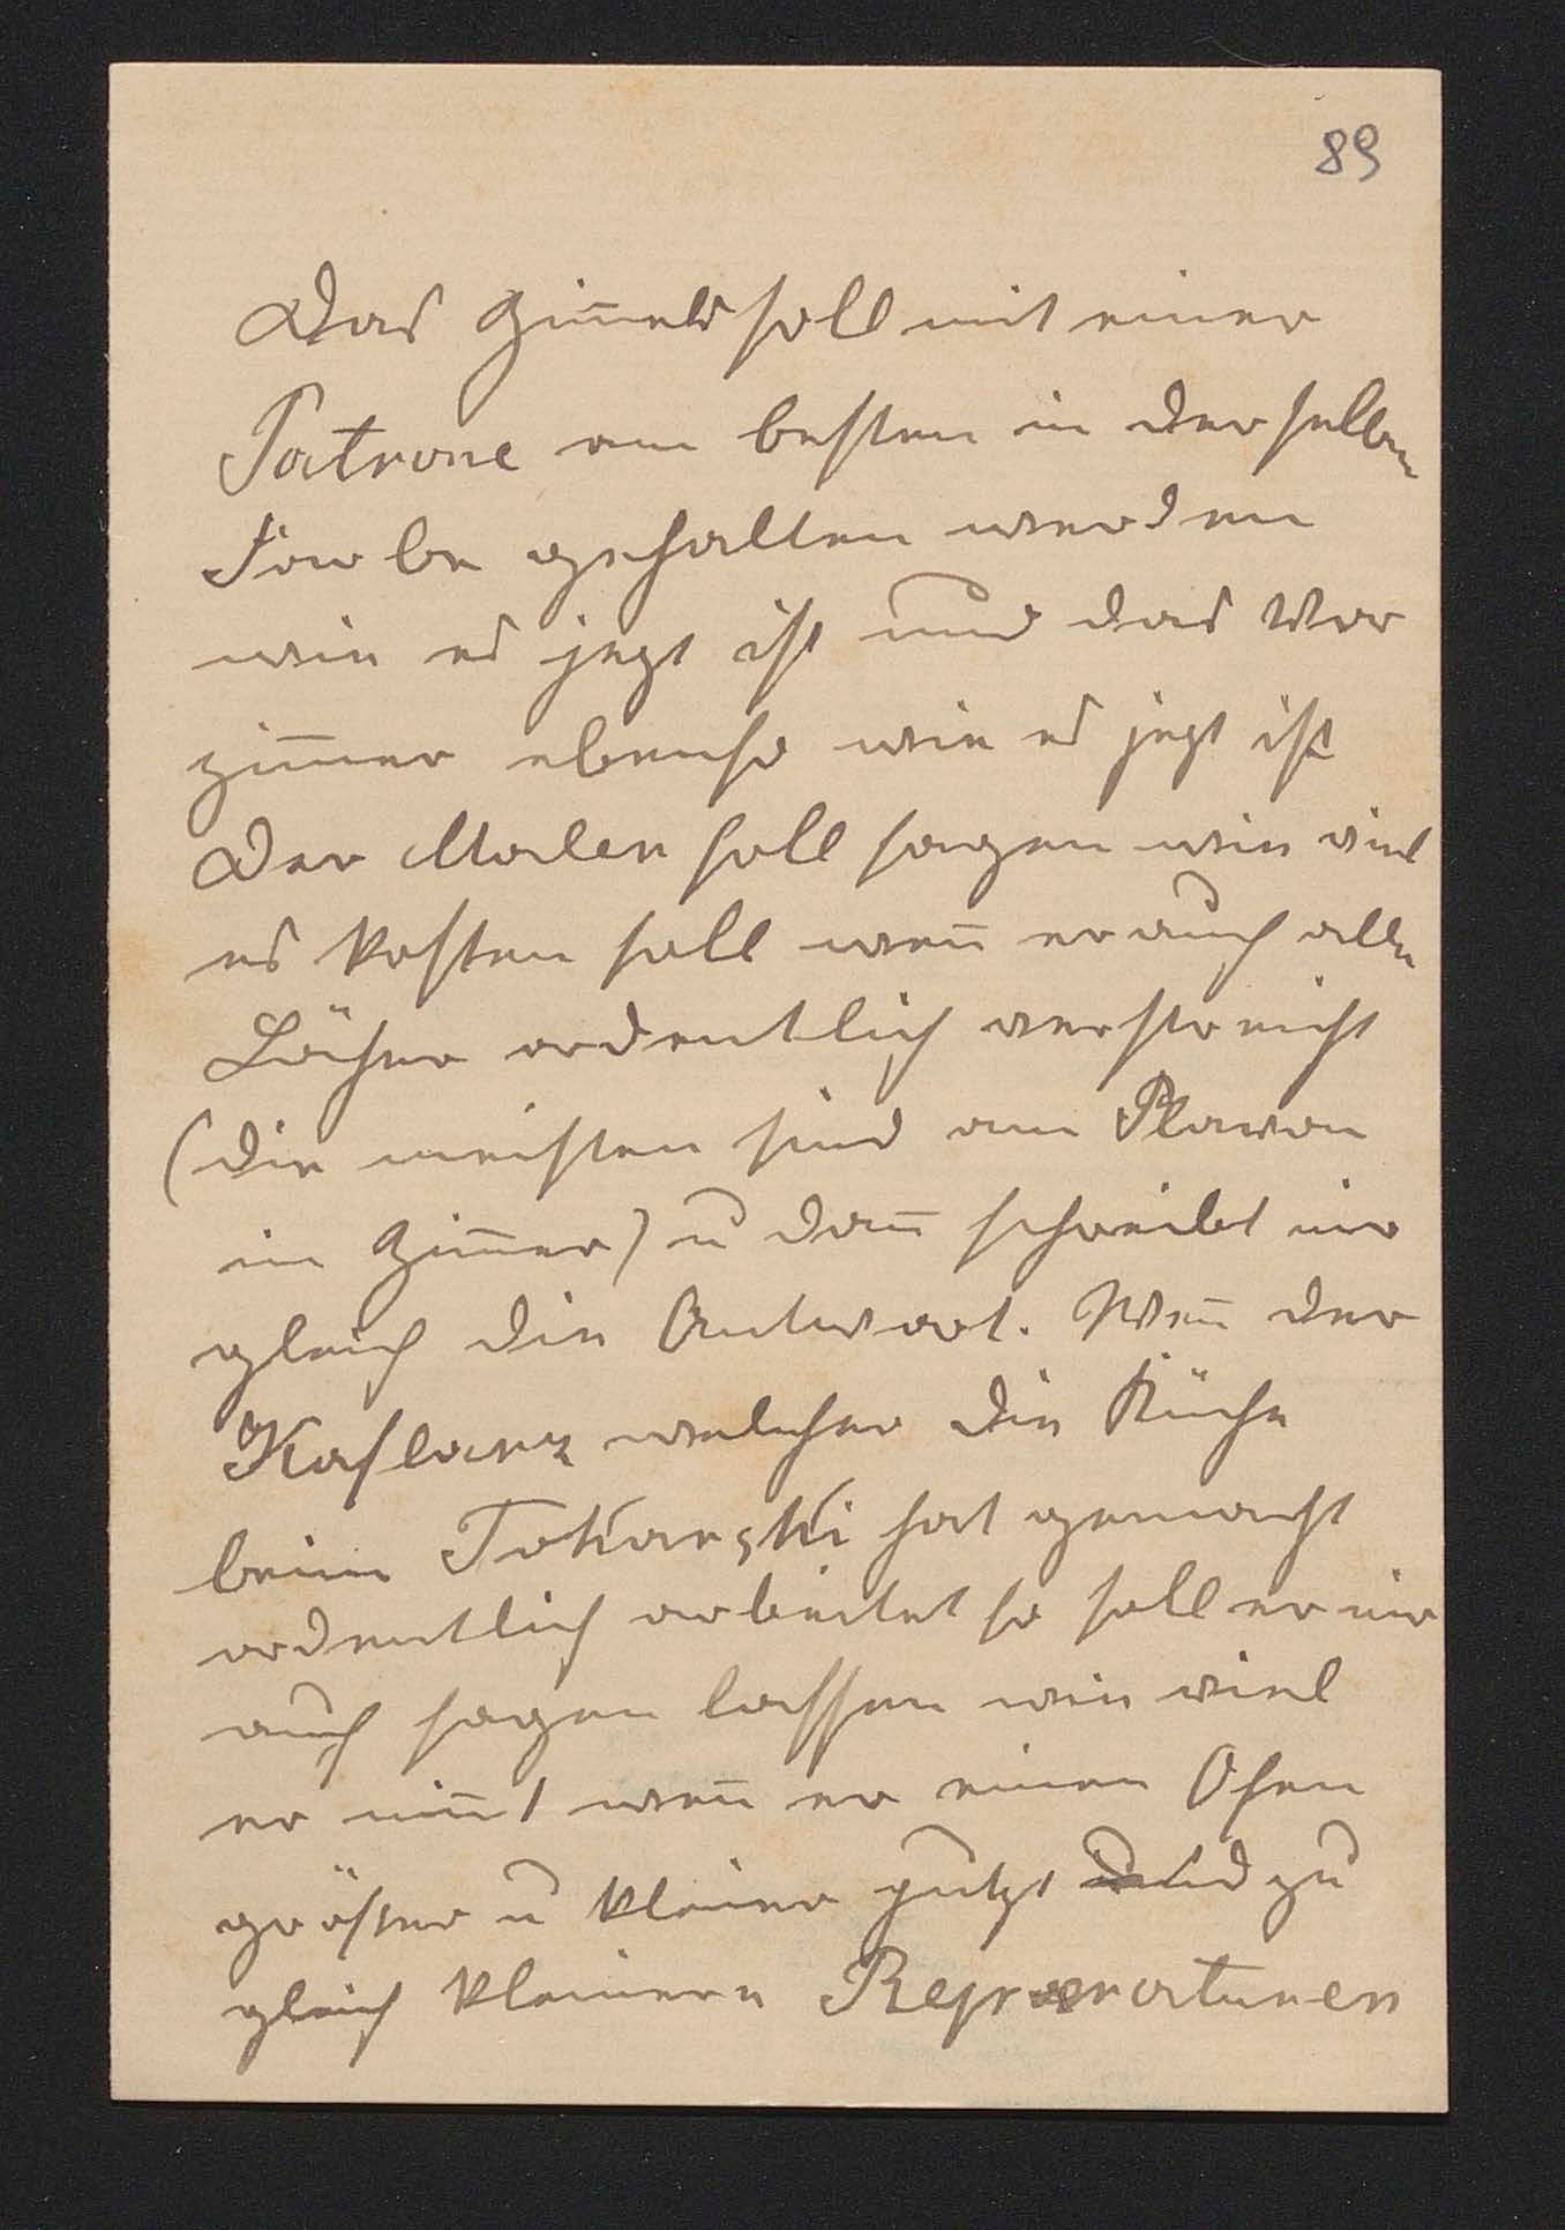 89
Das Zim̅er soll mit einer
Patrone am besten in derselben
Farbe gehalten werden
wie es jezt ist und das Vor
zim̅er ebenso wie es jezt ist
Der Maler soll sagen wie viel
es kosten soll wen̅ er auch alle
Löcher ordentlich verstreicht
(die meisten sind am Plavon
im Zim̅er) u dan̅ schreibt mir
gleich die Antwort. Wen̅ der
Kaflarz welcher die Küche
beim Tokarski hat gemacht
ordentlich arbeitet so soll er mir
auch sagen lassen wie viel
er nim̅t wen̅ er einen Ofen
größer u kleiner putzt und zu
gleich kleinere Reparaturen